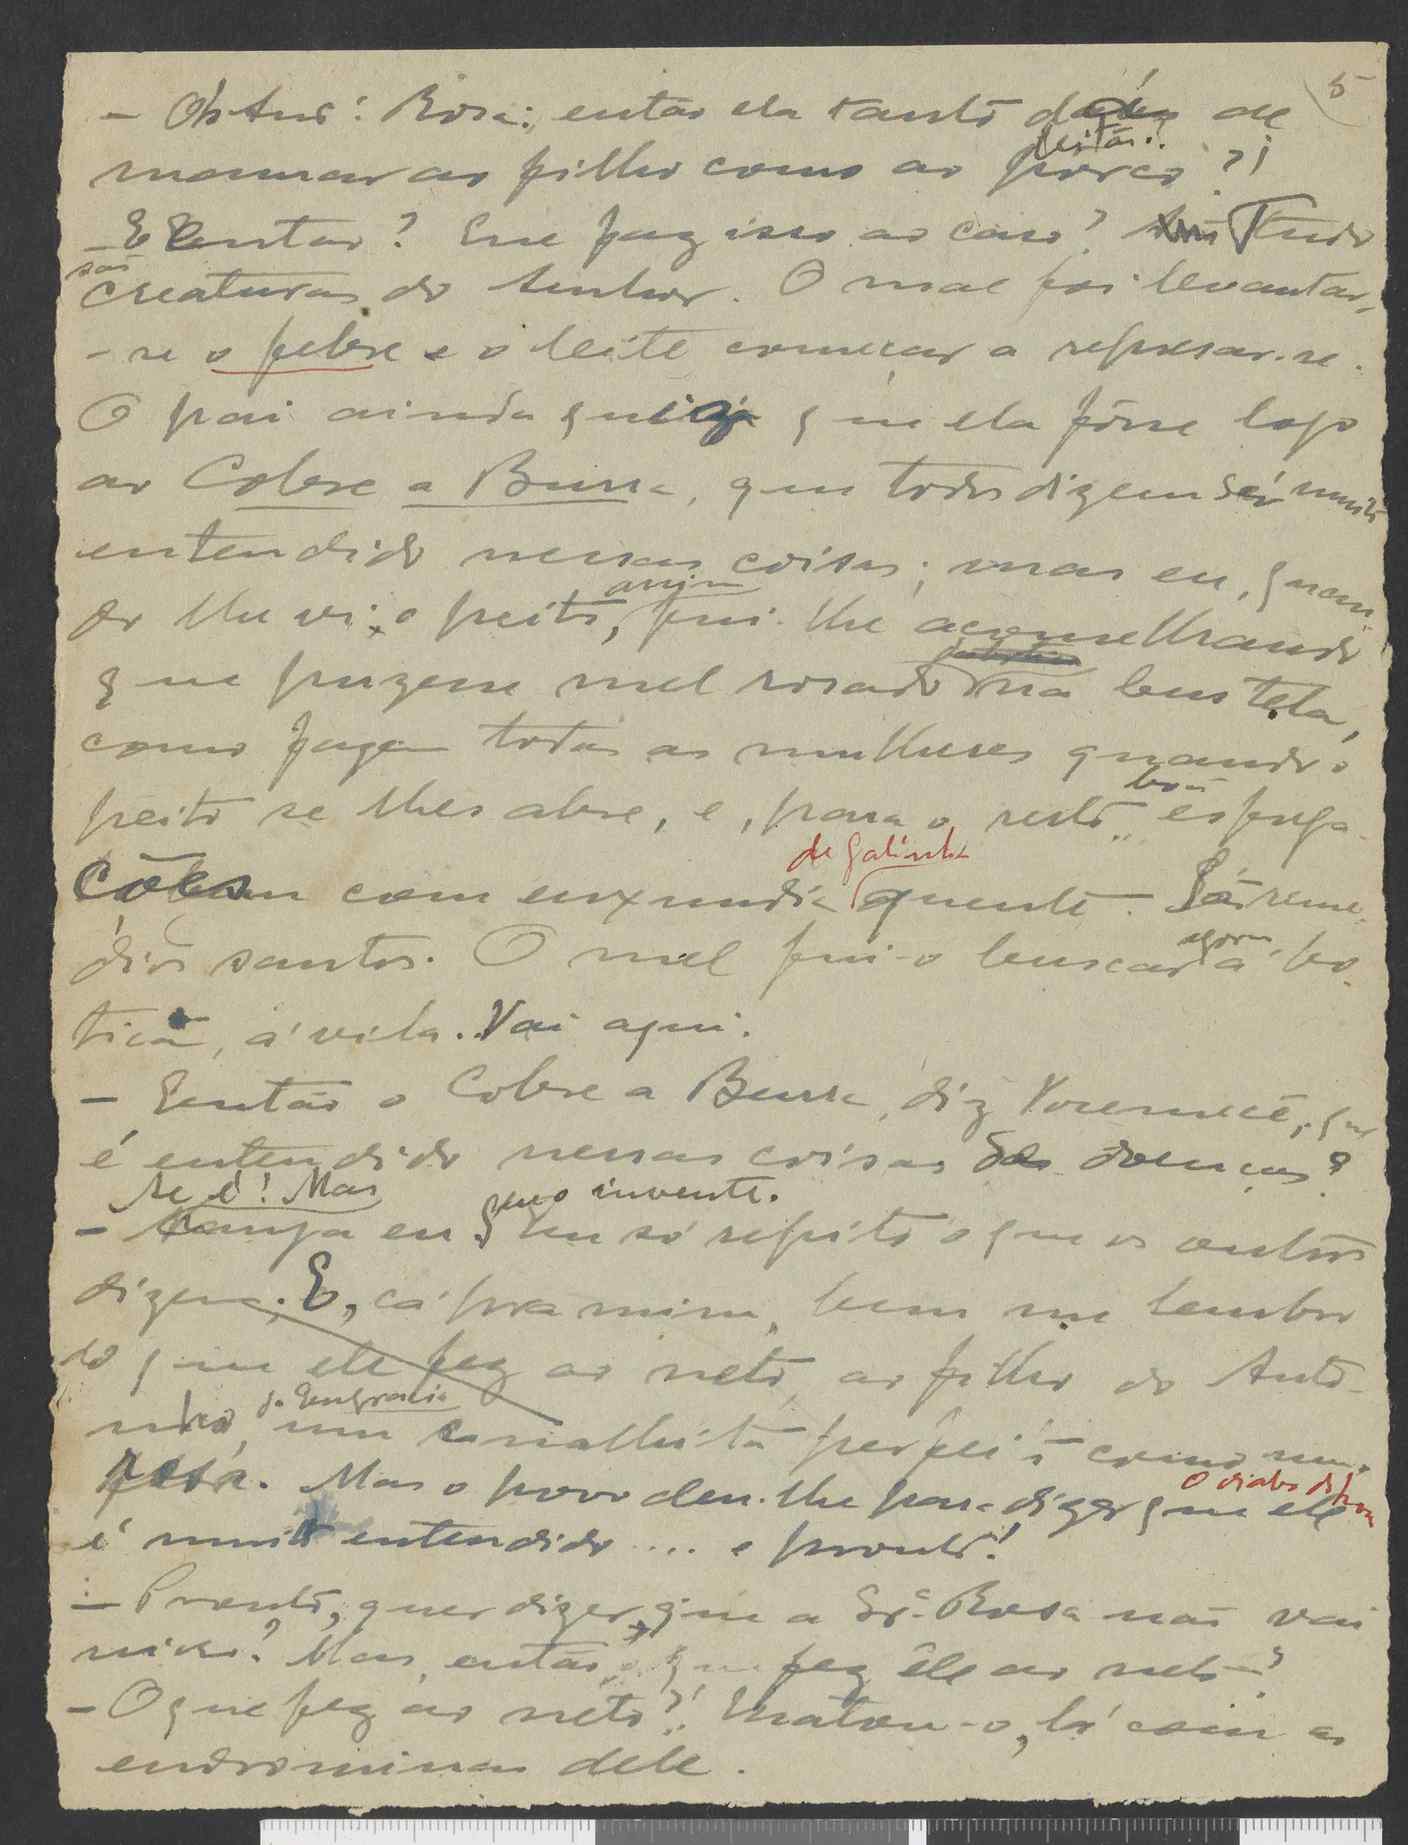 5
— Oh Snrª Rosa: então ela tanto dá de
deitão!
mamar ao filho como ao porco?!
— E então? Que faz isso ao caso? Tudo
são
creaturas do Senhor. O mal foi levantar-
-se o febre e o leite começar a represar-se.
O pai ainda quiz que ela fôsse logo
ao Cobre a Burra, que todos dizem ser muito
entendido nessas coisas; mas eu, quan-
assim
do lhe vi o peito, fui-lhe aconselhando
que puzesse mel rosado na teta,
como fazem todas as mulheres quando o
boas
peito se lhes abre, e, para o resto, esfrega-
de galinha
ções com enxundia quente. São remé-
agora
dios santos. O mel fui-o buscar á bo-
tica, á vila. Vai aqui.
— Então o Cobre a Burra, diz Vocemecê, que
é entendido nessas coisas de doenças?
Se é! Mas
não sou eu que o invente.
— Eu só repito o que os outros
dizem. E, cá pra mim, bem me lembro
do que ele fez ao neto, ao filho do Antó-
da Engracia
nio, um perfeito como um
Mas o povo deu-lhe para dizer que ele
o diabo do home
é muito entendido .... e pronto!
— Pronto, quer dizer que a Srª Rosa não vai
nisso? Mas, então, que fez êle ao neto?
— O que fez ao neto?! Matou-o, lá com as
endrominas dele.